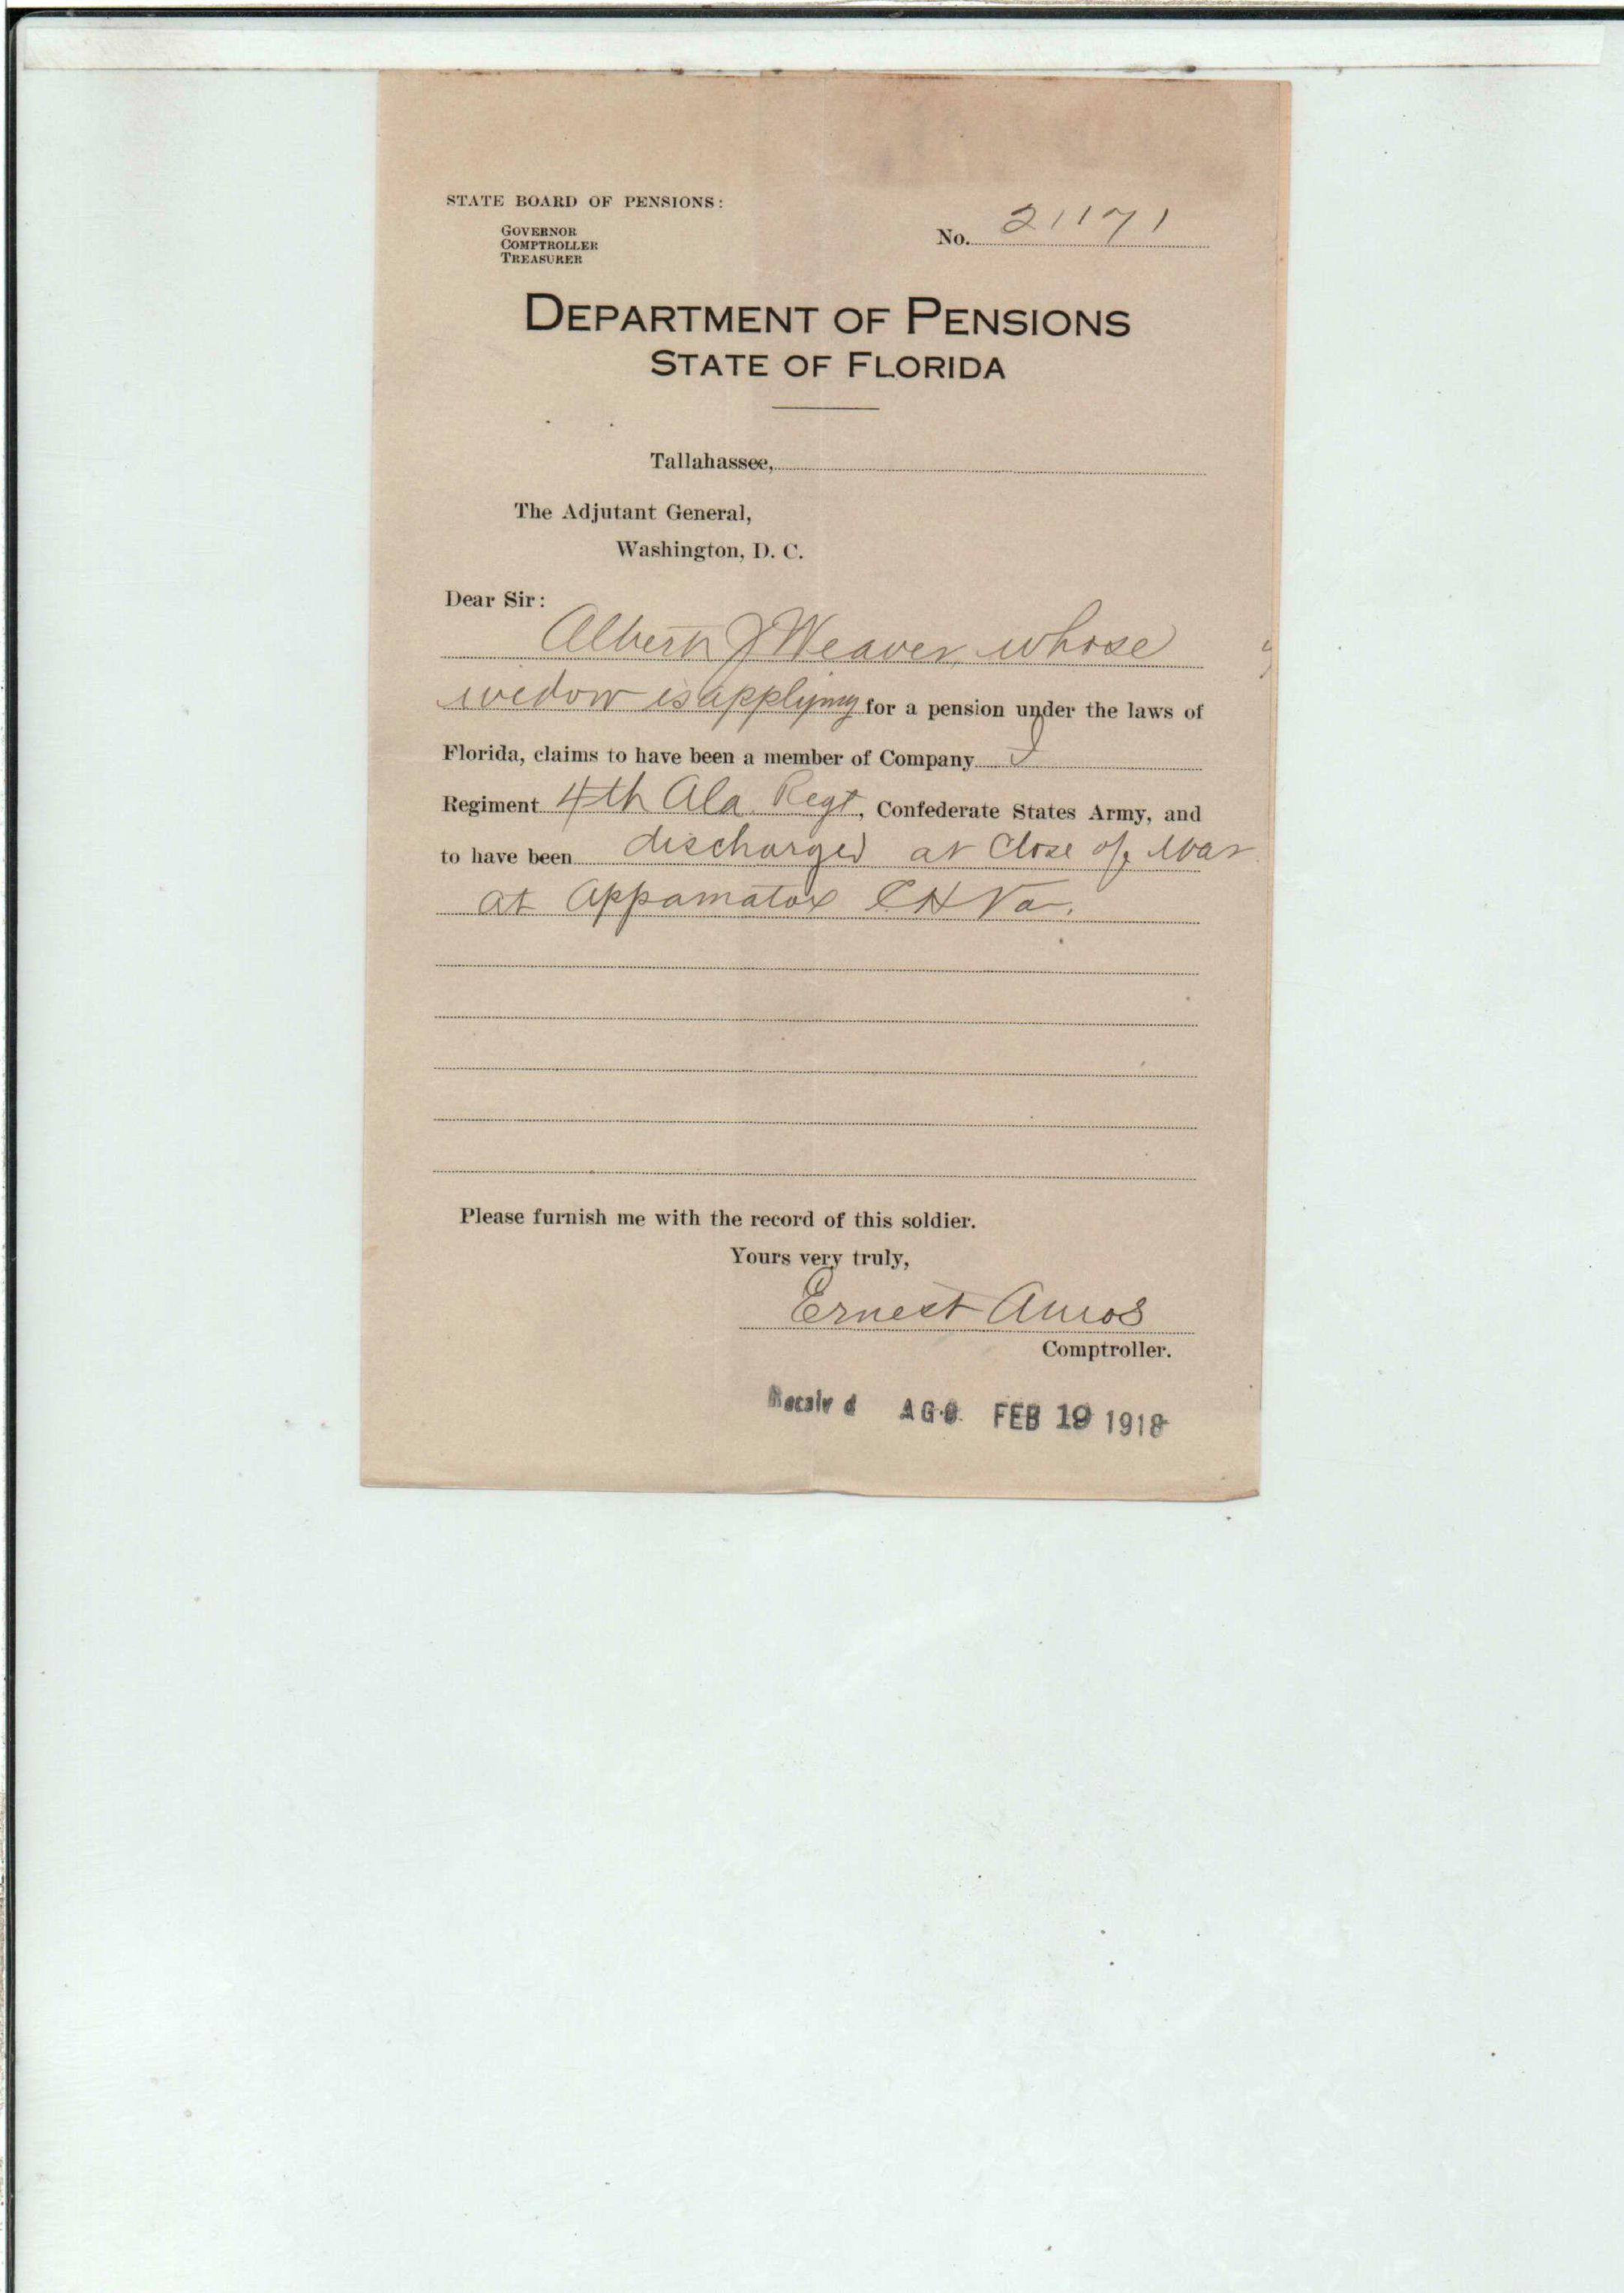 STATE BOARD OF PENSIONS:
GOVERNOR
COMPTROLLER
TREASURER
No. 21171
DEPARTMENT OF PENSIONS
STATE OF FLORIDA
Tallahassee,
The Adjutant General,
Washington, D. C.
Dear Sir:
Albert J Weaver, whose
widow is applying for a pension under the laws of
Florida, claims to have been a member of Company I
Regiment 4th Ala. Regt, Confederate States Army, and
to have been discharged at Close of War
at Appamatox C H Va.
Please furnish me with the record of this soldier.
Yours very truly,
Ernest Amos
Comptroller.
Receiv d A.G.O. FEB 19 1918